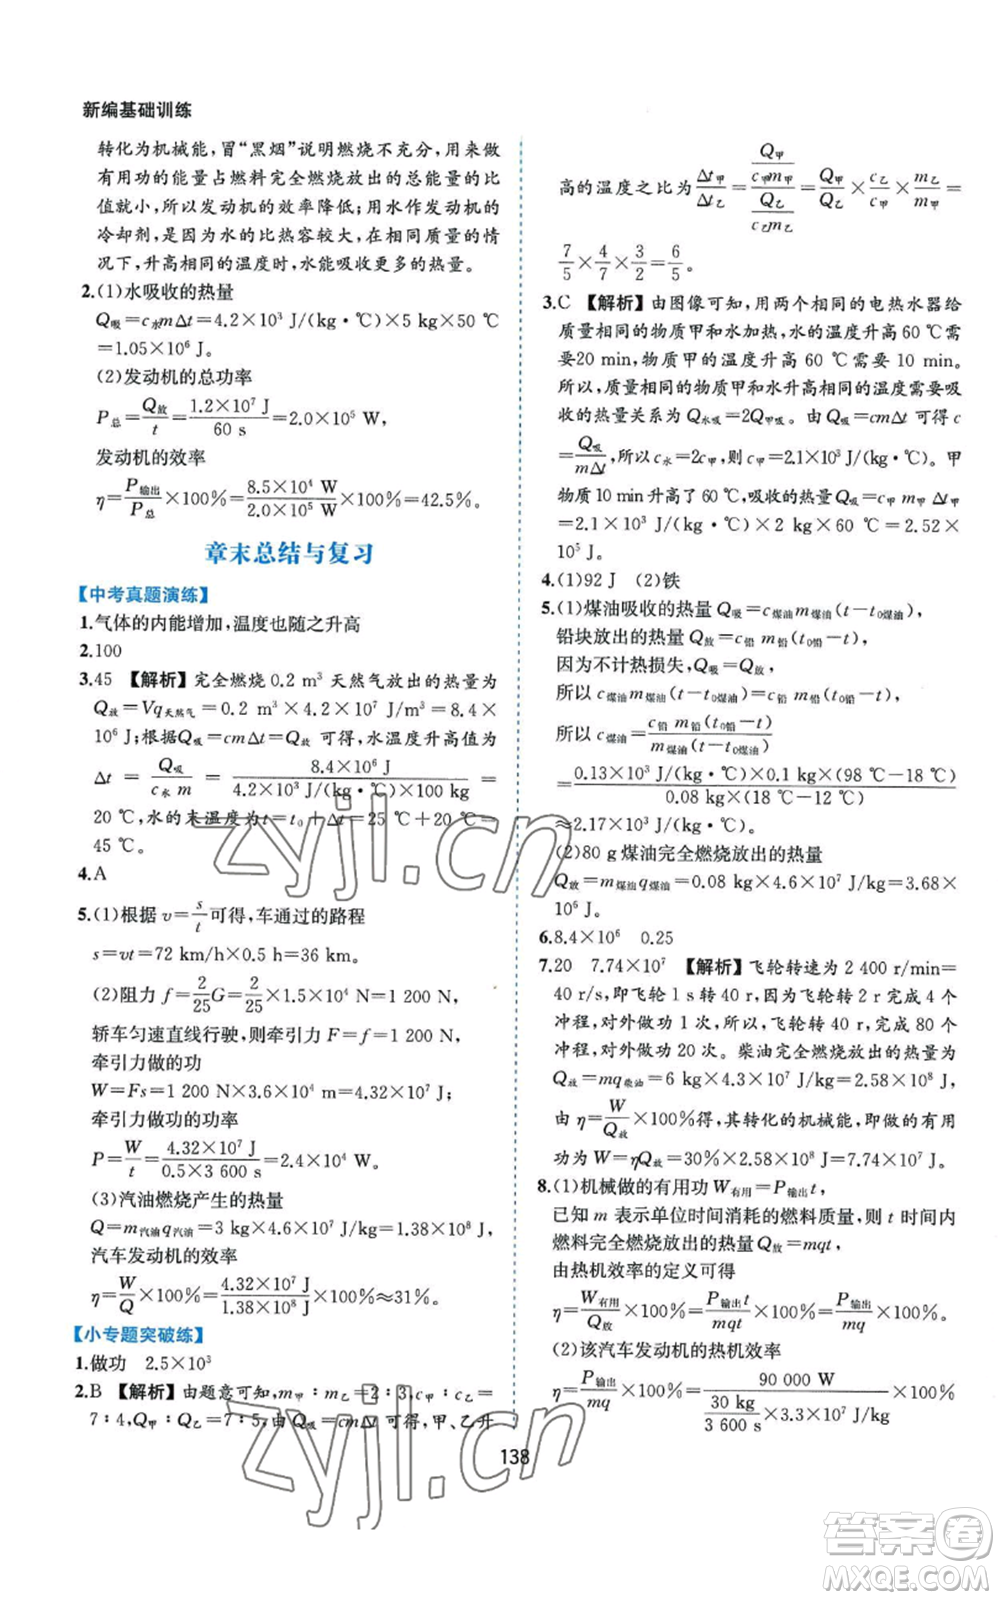 新编基础训练
转化为机械能,冒“黑烟”说明燃烧不充分,用来做
有用功的能量占燃料完全燃烧放出的总能量的比
值就小,所以发动机的效率降低;用水作发动机的
冷却剂,是因为水的比热容较大,在相同质量的情
况下,升高相同的温度时,水能吸收更多的热量。
2.(1)水吸收的热量
Q吸=c水mΔt=4.2×10³ J/(kg·℃)×5 kg×50 ℃
=1.05×10⁶ J。
(2)发动机的总功率
P总=Q放/t=1.2×10⁷ J/60 s=2.0×10⁵ W,
发动机的效率
η=P输出/P总×100%=8.5×10⁴ W/2.0×10⁵ W×100%=42.5%。
章末总结与复习
【中考真题演练】
1.气体的内能增加,温度也随之升高
2.100
3.45 【解析】完全燃烧0.2 m³ 天然气放出的热量为
Q放=Vq天然气=0.2 m³×4.2×10⁷ J/m³=8.4×
10⁶ J;根据Q吸=cmΔt=Q放 可得,水温度升高值为
Δt=Q吸/c水 m=8.4×10⁶ J/4.2×10³ J/(kg·℃)×100 kg=
20 ℃,水的末温度为t=t₀+Δt=25 ℃+20 ℃=
45 ℃。
4.A
5.(1)根据 v=s/t可得,车通过的路程
s=vt=72 km/h×0.5 h=36 km。
(2)阻力 f=2/25G=2/25×1.5×10⁴ N=1 200 N,
轿车匀速直线行驶,则牵引力 F=f=1 200 N,
牵引力做的功
W=Fs=1 200 N×3.6×10⁴ m=4.32×10⁷ J;
牵引力做功的功率
P=W/t=4.32×10⁷ J/0.5×3 600 s=2.4×10⁴ W。
(3)汽油燃烧产生的热量
Q=m汽油q汽油=3 kg×4.6×10⁷ J/kg=1.38×10⁸ J;
汽车发动机的效率
η=W/Q×100%=4.32×10⁷ J/1.38×10⁸ J×100%≈31%。
【小专题突破练】
1.做功 2.5×10³
2.B 【解析】由题意可知,m甲∶m乙=2∶3,c甲∶c乙=
7∶4,Q甲∶Q乙=7∶5,由Q吸=cmΔt 可得,甲、乙升
高的温度之比为Δt甲/Δt乙=(Q甲/c甲m甲)/(Q乙/c乙m乙)=Q甲/Q乙×c乙/c甲×m乙/m甲=
7/5×4/7×3/2=6/5。
3.C 【解析】由图像可知,用两个相同的电热水器给
质量相同的物质甲和水加热,水的温度升高 60 ℃需
要20 min,物质甲的温度升高 60 ℃需要 10 min。
所以,质量相同的物质甲和水升高相同的温度需要吸
收的热量关系为 Q水吸=2Q甲吸。由 Q吸=cmΔt 可得 c
=Q吸/mΔt,所以 c水=2c甲,则 c甲=2.1×10³ J/(kg·℃)。甲
物质10 min升高了60 ℃,吸收的热量Q吸=c甲 m甲 Δt甲
=2.1×10³ J/(kg·℃)×2 kg×60 ℃=2.52×
10⁵ J。
4.(1)92 J (2)铁
5.(1)煤油吸收的热量 Q吸=c煤油m煤油(t-t₀煤油),
铅块放出的热量 Q放=c铅 m铅(t₀铅-t),
因为不计热损失,Q吸=Q放,
所以 c煤油 m煤油(t-t₀煤油)=c铅 m铅(t₀铅-t),
所以c煤油=c铅 m铅(t₀铅-t)/m煤油(t-t₀煤油)
=0.13×10³ J/(kg·℃)×0.1 kg×(98 ℃-18 ℃)/0.08 kg×(18 ℃-12 ℃)
≈2.17×10³ J/(kg·℃)。
(2)80 g煤油完全燃烧放出的热量
Q放=m煤油q煤油=0.08 kg×4.6×10⁷ J/kg=3.68×
10⁶ J。
6.8.4×10⁶ 0.25
7.20 7.74×10⁷ 【解析】飞轮转速为2 400 r/min=
40 r/s,即飞轮 1 s 转 40 r,飞轮转 2 r 完成 4 个
冲程,对外做功 1 次,所以,飞轮转 40 r,完成 80 个
冲程,对外做功 20 次。柴油完全燃烧放出的热量为
Q放=mq柴油=6 kg×4.3×10⁷ J/kg=2.58×10⁸ J,
由 η=W/Q放×100%得,其转化的机械能,即做的有用
功为 W=ηQ放=30%×2.58×10⁸ J=7.74×10⁷ J。
8.(1)机械做的有用功 W有用=P输出t,
已知 m 表示单位时间消耗的燃料质量,则 t 时间内
燃料完全燃烧放出的热量Q放=mqt,
由热机效率的定义可得
η=W有用/Q放×100%=P输出t/mqt×100%=P输出/mq×100%。
(2)该汽车发动机的热机效率
η=P输出/mq×100%=90 000 W/(30 kg/3 600 s×3.3×10⁷ J/kg)×100%
138
zyjl.cn
zyjl.cn
答案卷
MXQE.COM